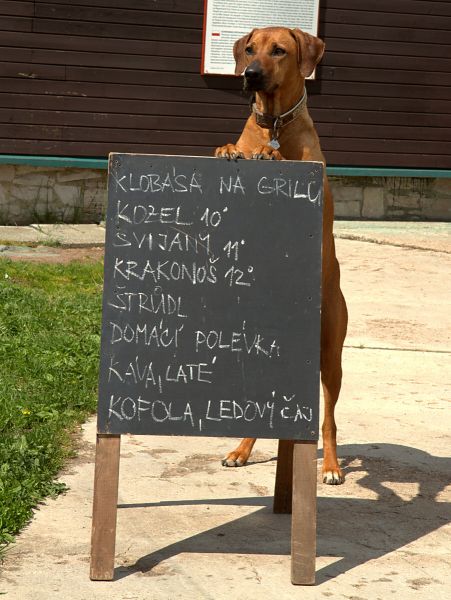 KLOBÁSA NA GRILU
KOZEL 10°
SVIJANY 11°
KRAKONOŠ 12°
ŠTRŮDL
DOMÁCÍ POLÉVKA
KÁVA, LATÉ
KOFOLA, LEDOVÝ ČAJ